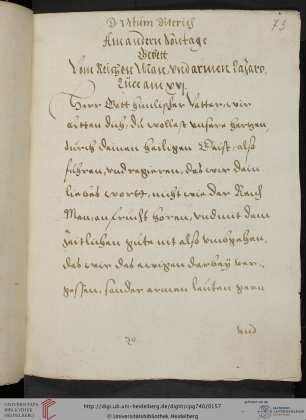 D Vitum Diterich
73
Am andern Sontage
Gebett
Vom Reichen Man, vnd armen Lazaro,
Lucæ am XVI.
Herr Gott himlischer Vatter, wir
bitten dich, du wollest vnsere hertzen,
durch deinen heiligen Geist, also
führen, vnd regieren, das wir dein
liebes wortt, nicht wie der Reich
Man, on frucht hören, vnd mit dem
zeitlichen gute nit also vmbgehen,
das wir das ewigen darbey ver-
gessen, sonder armen leuten gern
vnd
UNIVERSITÄTS-
BIBLIOTHEK
HEIDELBERG
http://digi.ub.uni-heidelberg.de/diglit/cpg740/0157
© Universitätsbibliothek Heidelberg